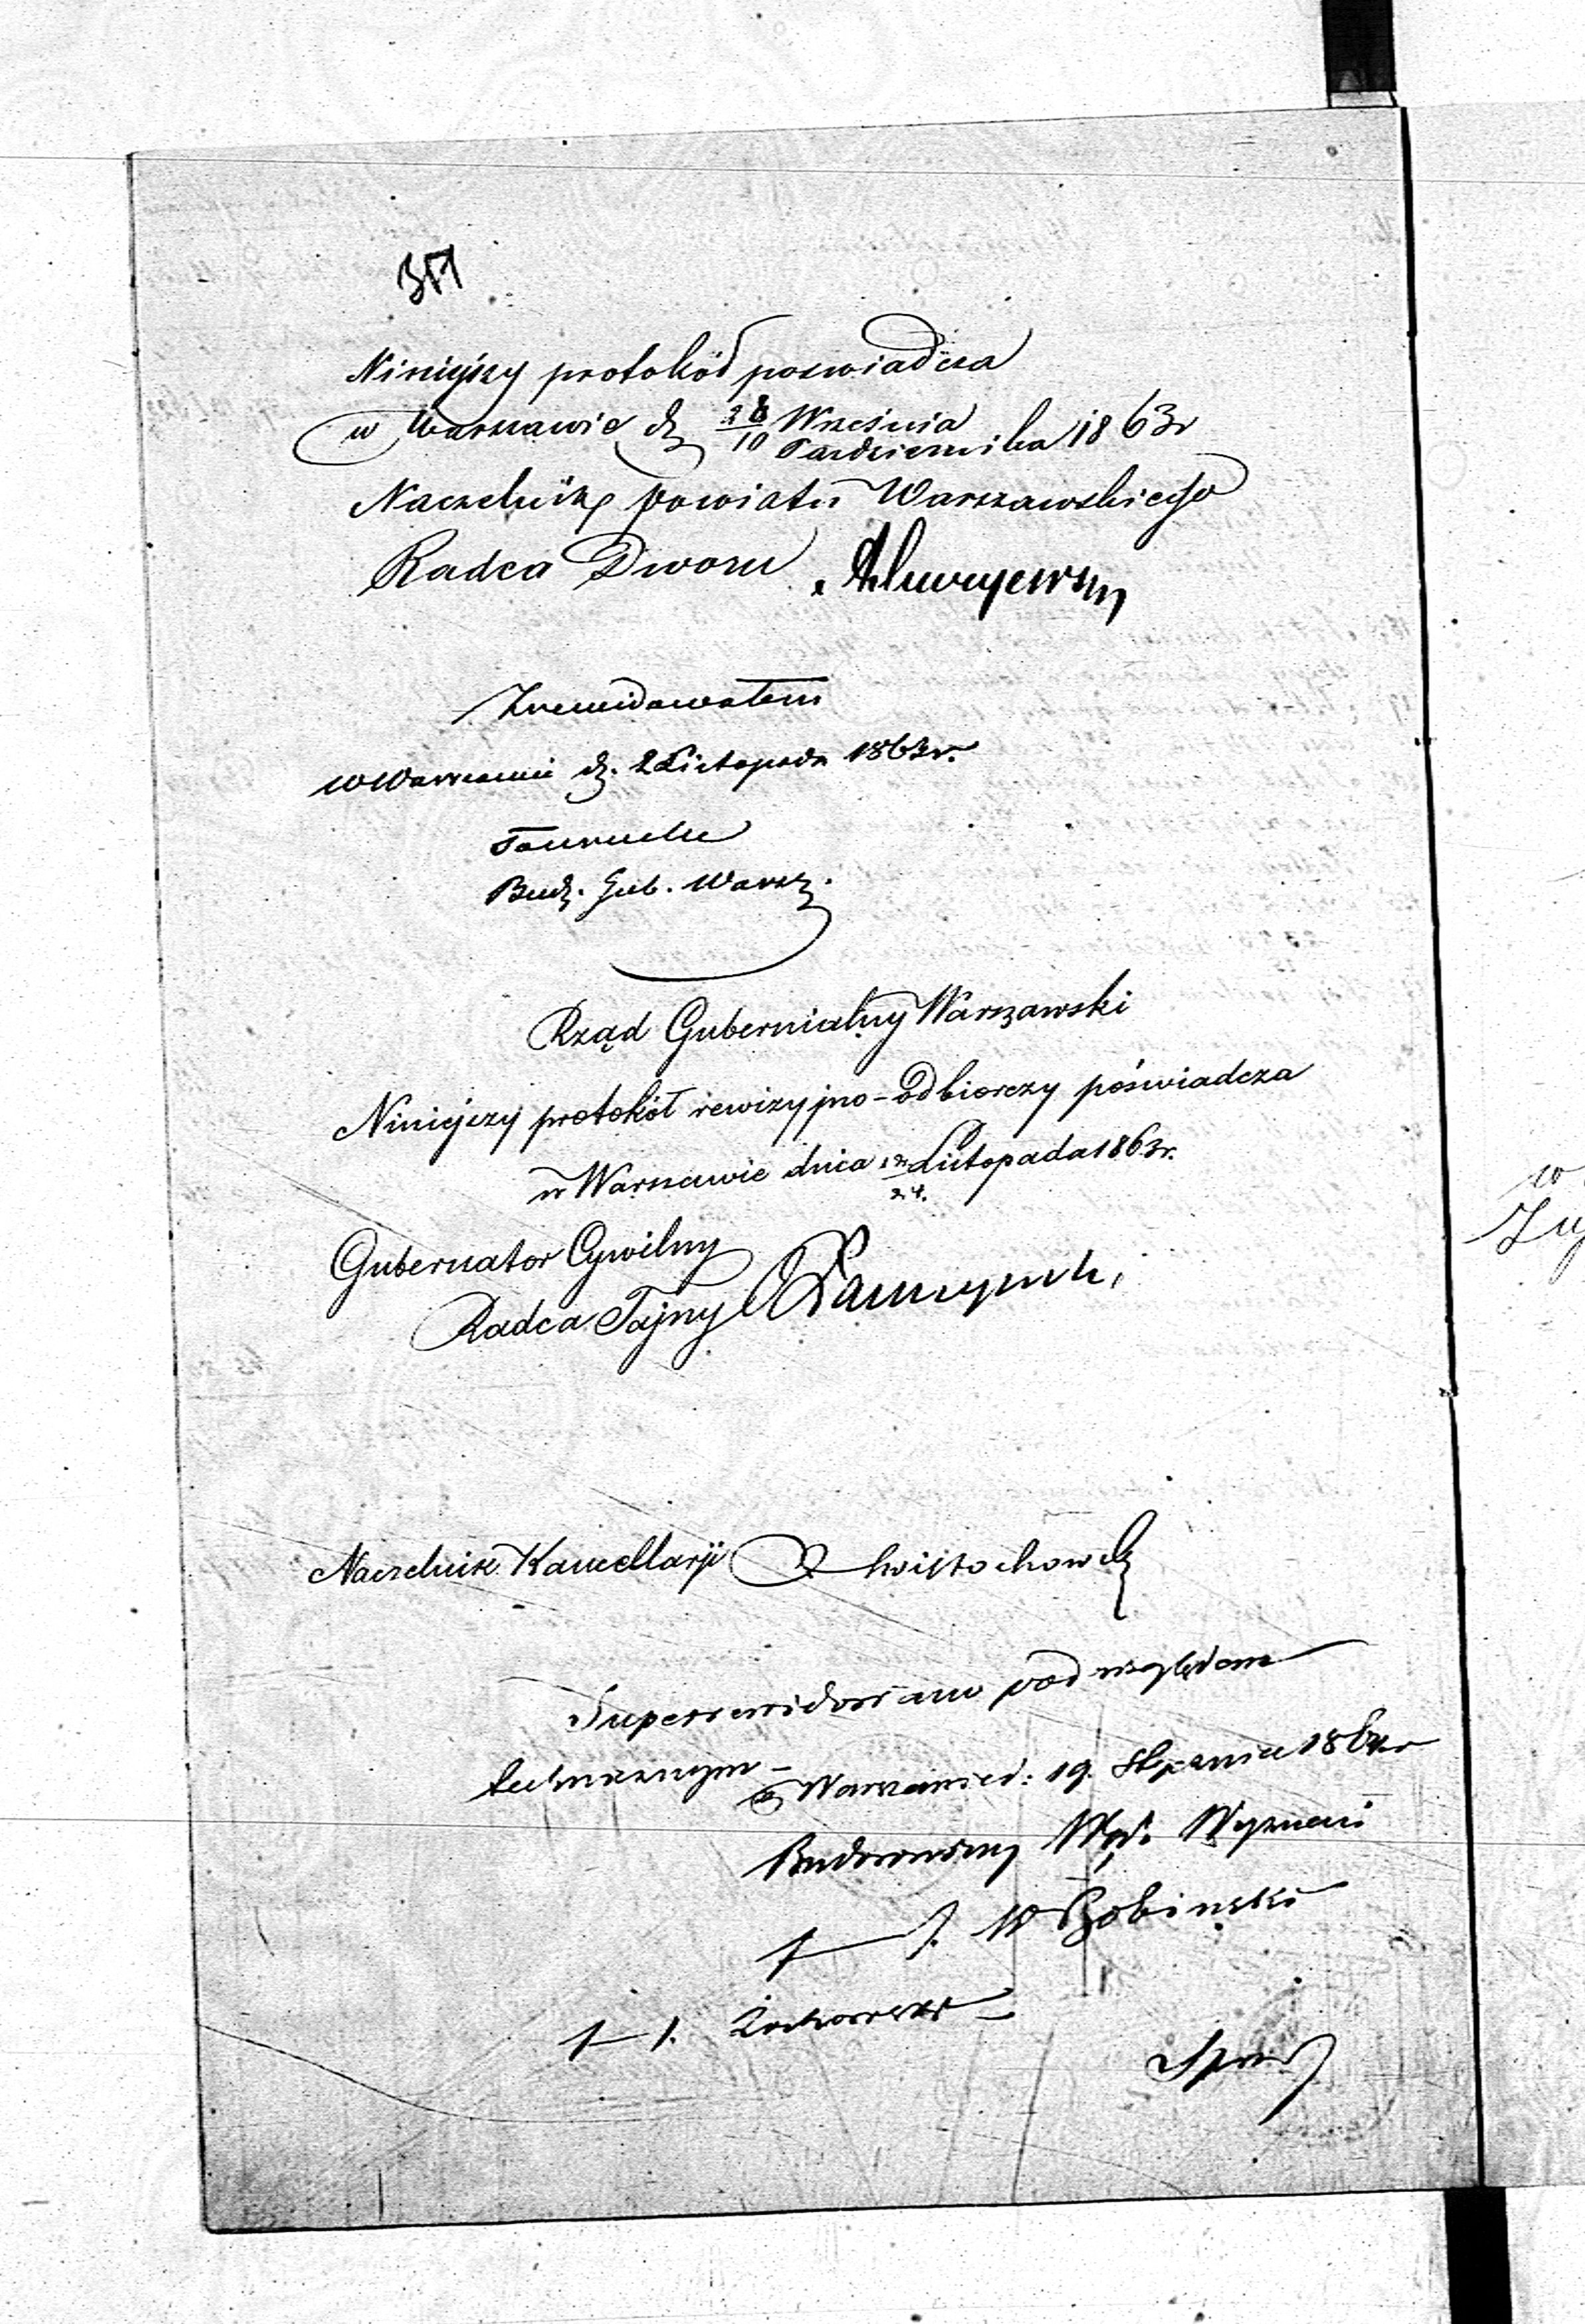 Niniejszy protokół poświadcza
w Warszawie d. 28/10 Września/Października 1863r
Naczelnik powiatu Warszawskiego
Radca Dworu
Zrewidowałem
w Warszawie d. 2 Listopada 1863r.
Bud. Gub. Warsz.
Rząd Gubernialny Warszawski
Niniejszy protokół rewizyjno-odbiorczy poświadcza
w Warszawie dnia 12/24. Listopada 1863r.
Gubernator Cywilny
Radca Tajny Łaszczyński
Naczelnik Kancellarji Świętochowski
Superrewidowano pod względem
technicznym –
w Warszawie d: 19. Stycznia 1864r
Budowniczy Wyd. Wyznań
W Bobiński